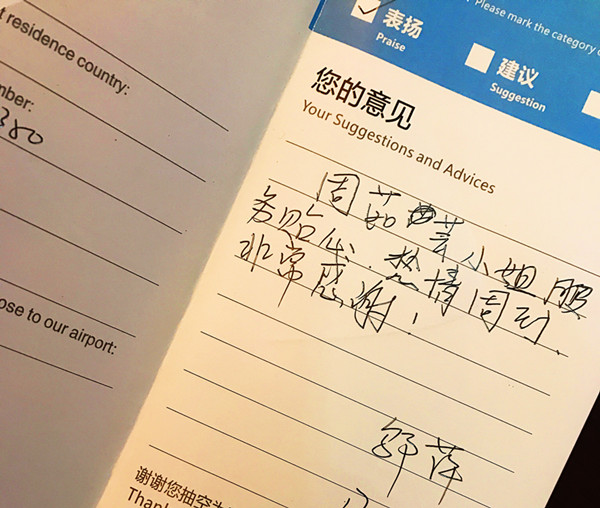 t residence country:
mber:
380
ose to our airport:
Please mark the category o
表扬
Praise
建议
Suggestion
您的意见
Your Suggestions and Advices
周茹 小姐服
务贴心、热情周到
非常感谢!
舒萍
谢谢您抽空为
Than